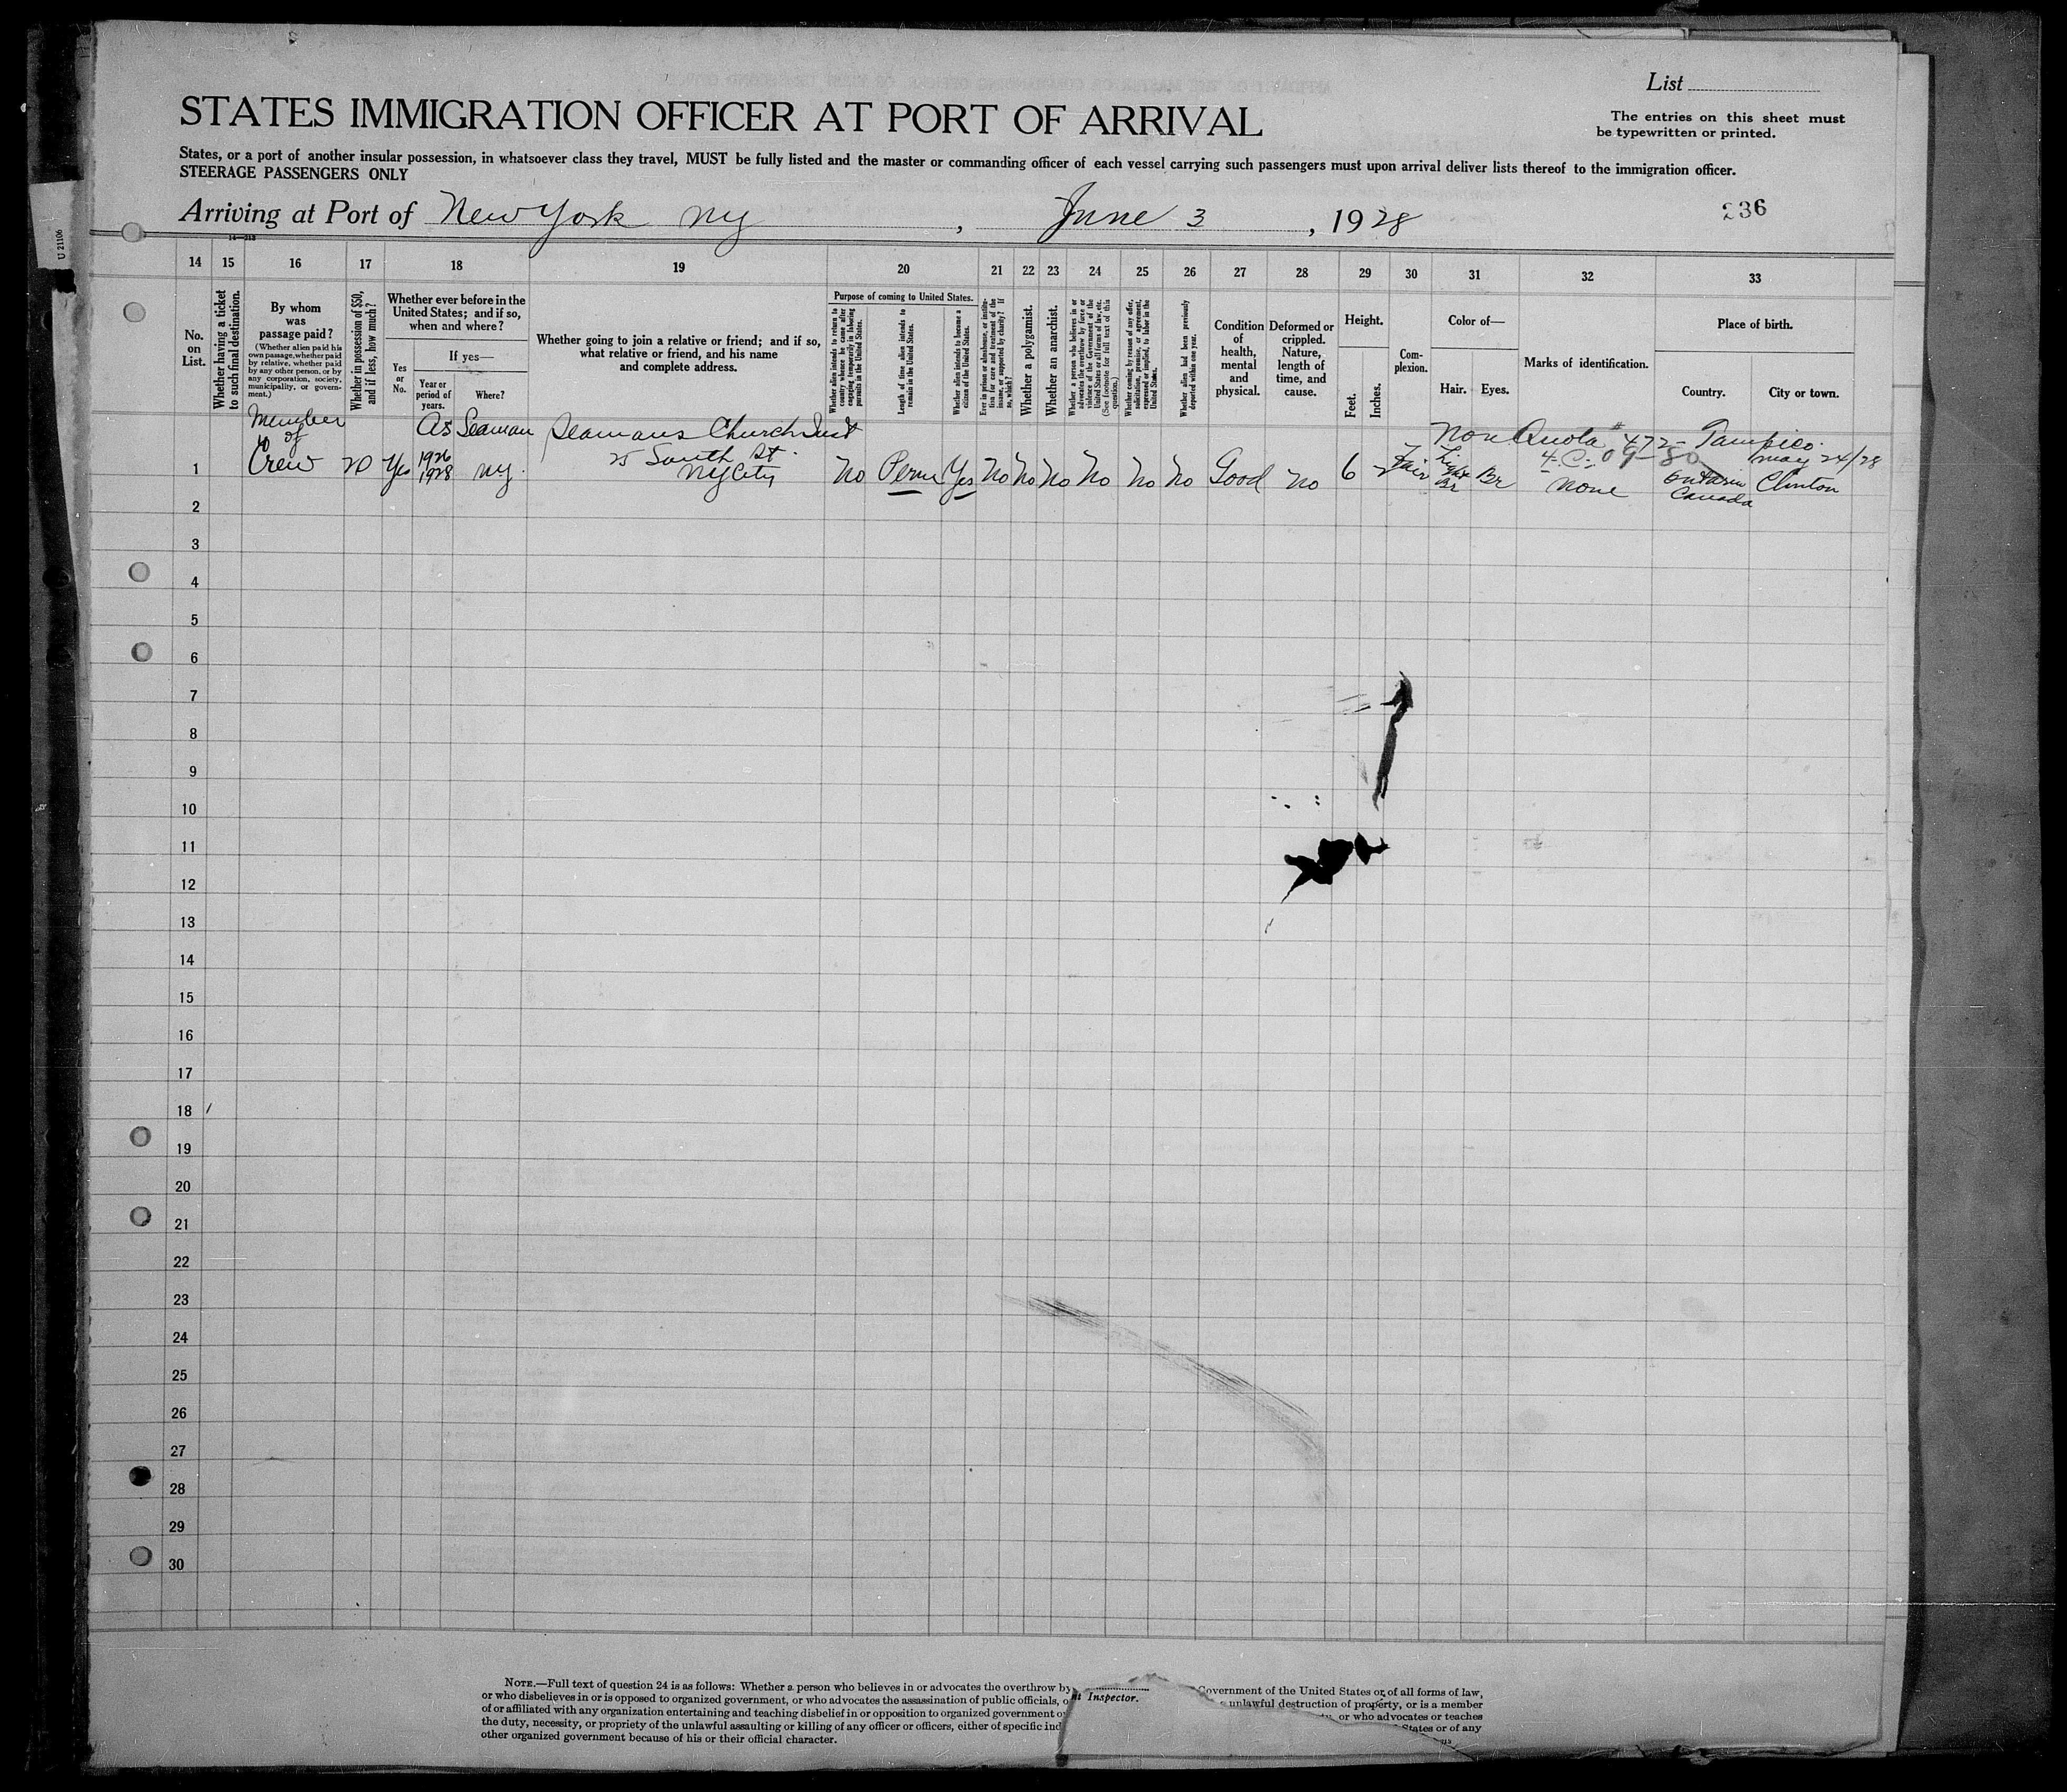 List
STATES IMMIGRATION OFFICER AT PORT OF ARRIVAL
The entries on this sheet must
be typewritten or printed.
States, or a port of another insular possession, in whatsoever class they travel, MUST be fully listed and the master or commanding officer of each vessel carrying such passengers must upon arrival deliver lists thereof to the immigration officer.
STEERAGE PASSENGERS ONLY
Arriving at Port of New York NY, June 3, 1928
236
U 21106
14 15 16 17 18 19 20 21 22 23 24 25 26 27 28 29 30 31 32 33
No. on List.
Whether having a ticket to such final destination.
By whom was passage paid?
(Whether alien paid his own passage, whether paid by relative, whether paid by any other person, or by any corporation, society, municipality, or government.)
Whether in possession of $50, and if less, how much?
Whether ever before in the United States; and if so, when and where?
Yes or No.
If yes—
Year or period of years.
Where?
Whether going to join a relative or friend; and if so, what relative or friend, and his name and complete address.
Purpose of coming to United States.
Whether alien intends to return to country whence he came after engaging temporarily in laboring pursuits in the United States.
Length of time alien intends to remain in the United States.
Whether alien intends to become a citizen of the United States.
Ever in prison or almshouse, or institution for care and treatment of the insane, or supported by charity? If so, which?
Whether a polygamist.
Whether an anarchist.
Whether a person who believes in or advocates the overthrow by force or violence of the Government of the United States or all forms of law, etc. (See footnote for full text of this question.)
Whether coming by reason of any offer, solicitation, promise, or agreement, expressed or implied, to labor in the United States.
Whether alien had been previously deported within one year.
Condition of health, mental and physical.
Deformed or crippled. Nature, length of time, and cause.
Height.
Feet.
Inches.
Complexion.
Color of—
Hair.
Eyes.
Marks of identification.
Place of birth.
Country.
City or town.
Member of Crew
As Seaman
Seamans Church Inst
Non Quota # 472 - Tampico
May 24/28
1
20 Yes 1926 1928 NY.
25 South St.
NY City
No Perm Yes No No No No No No Good No 6 Fair Light Br Br None Ontario Canada Clinton
2
3
4
5
6
7
8
9
10
11
12
13
14
15
16
17
18
19
20
21
22
23
24
25
26
27
28
29
30
NOTE.—Full text of question 24 is as follows: Whether a person who believes in or advocates the overthrow by
Government of the United States or of all forms of law,
or who disbelieves in or is opposed to organized government, or who advocates the assassination of public officials, o
nt Inspector.
unlawful destruction of property, or is a member
of or affiliated with any organization entertaining and teaching disbelief in or opposition to organized government o
or who advocates or teaches
the duty, necessity, or propriety of the unlawful assaulting or killing of any officer or officers, either of specific ind
States or of any
other organized government because of his or their official character.